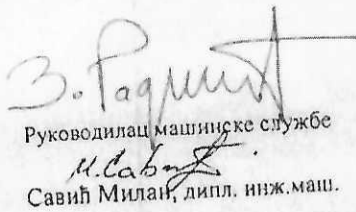 Руководилац машинске службе
М. Савић
Савић Милан, дипл. инж.маш.